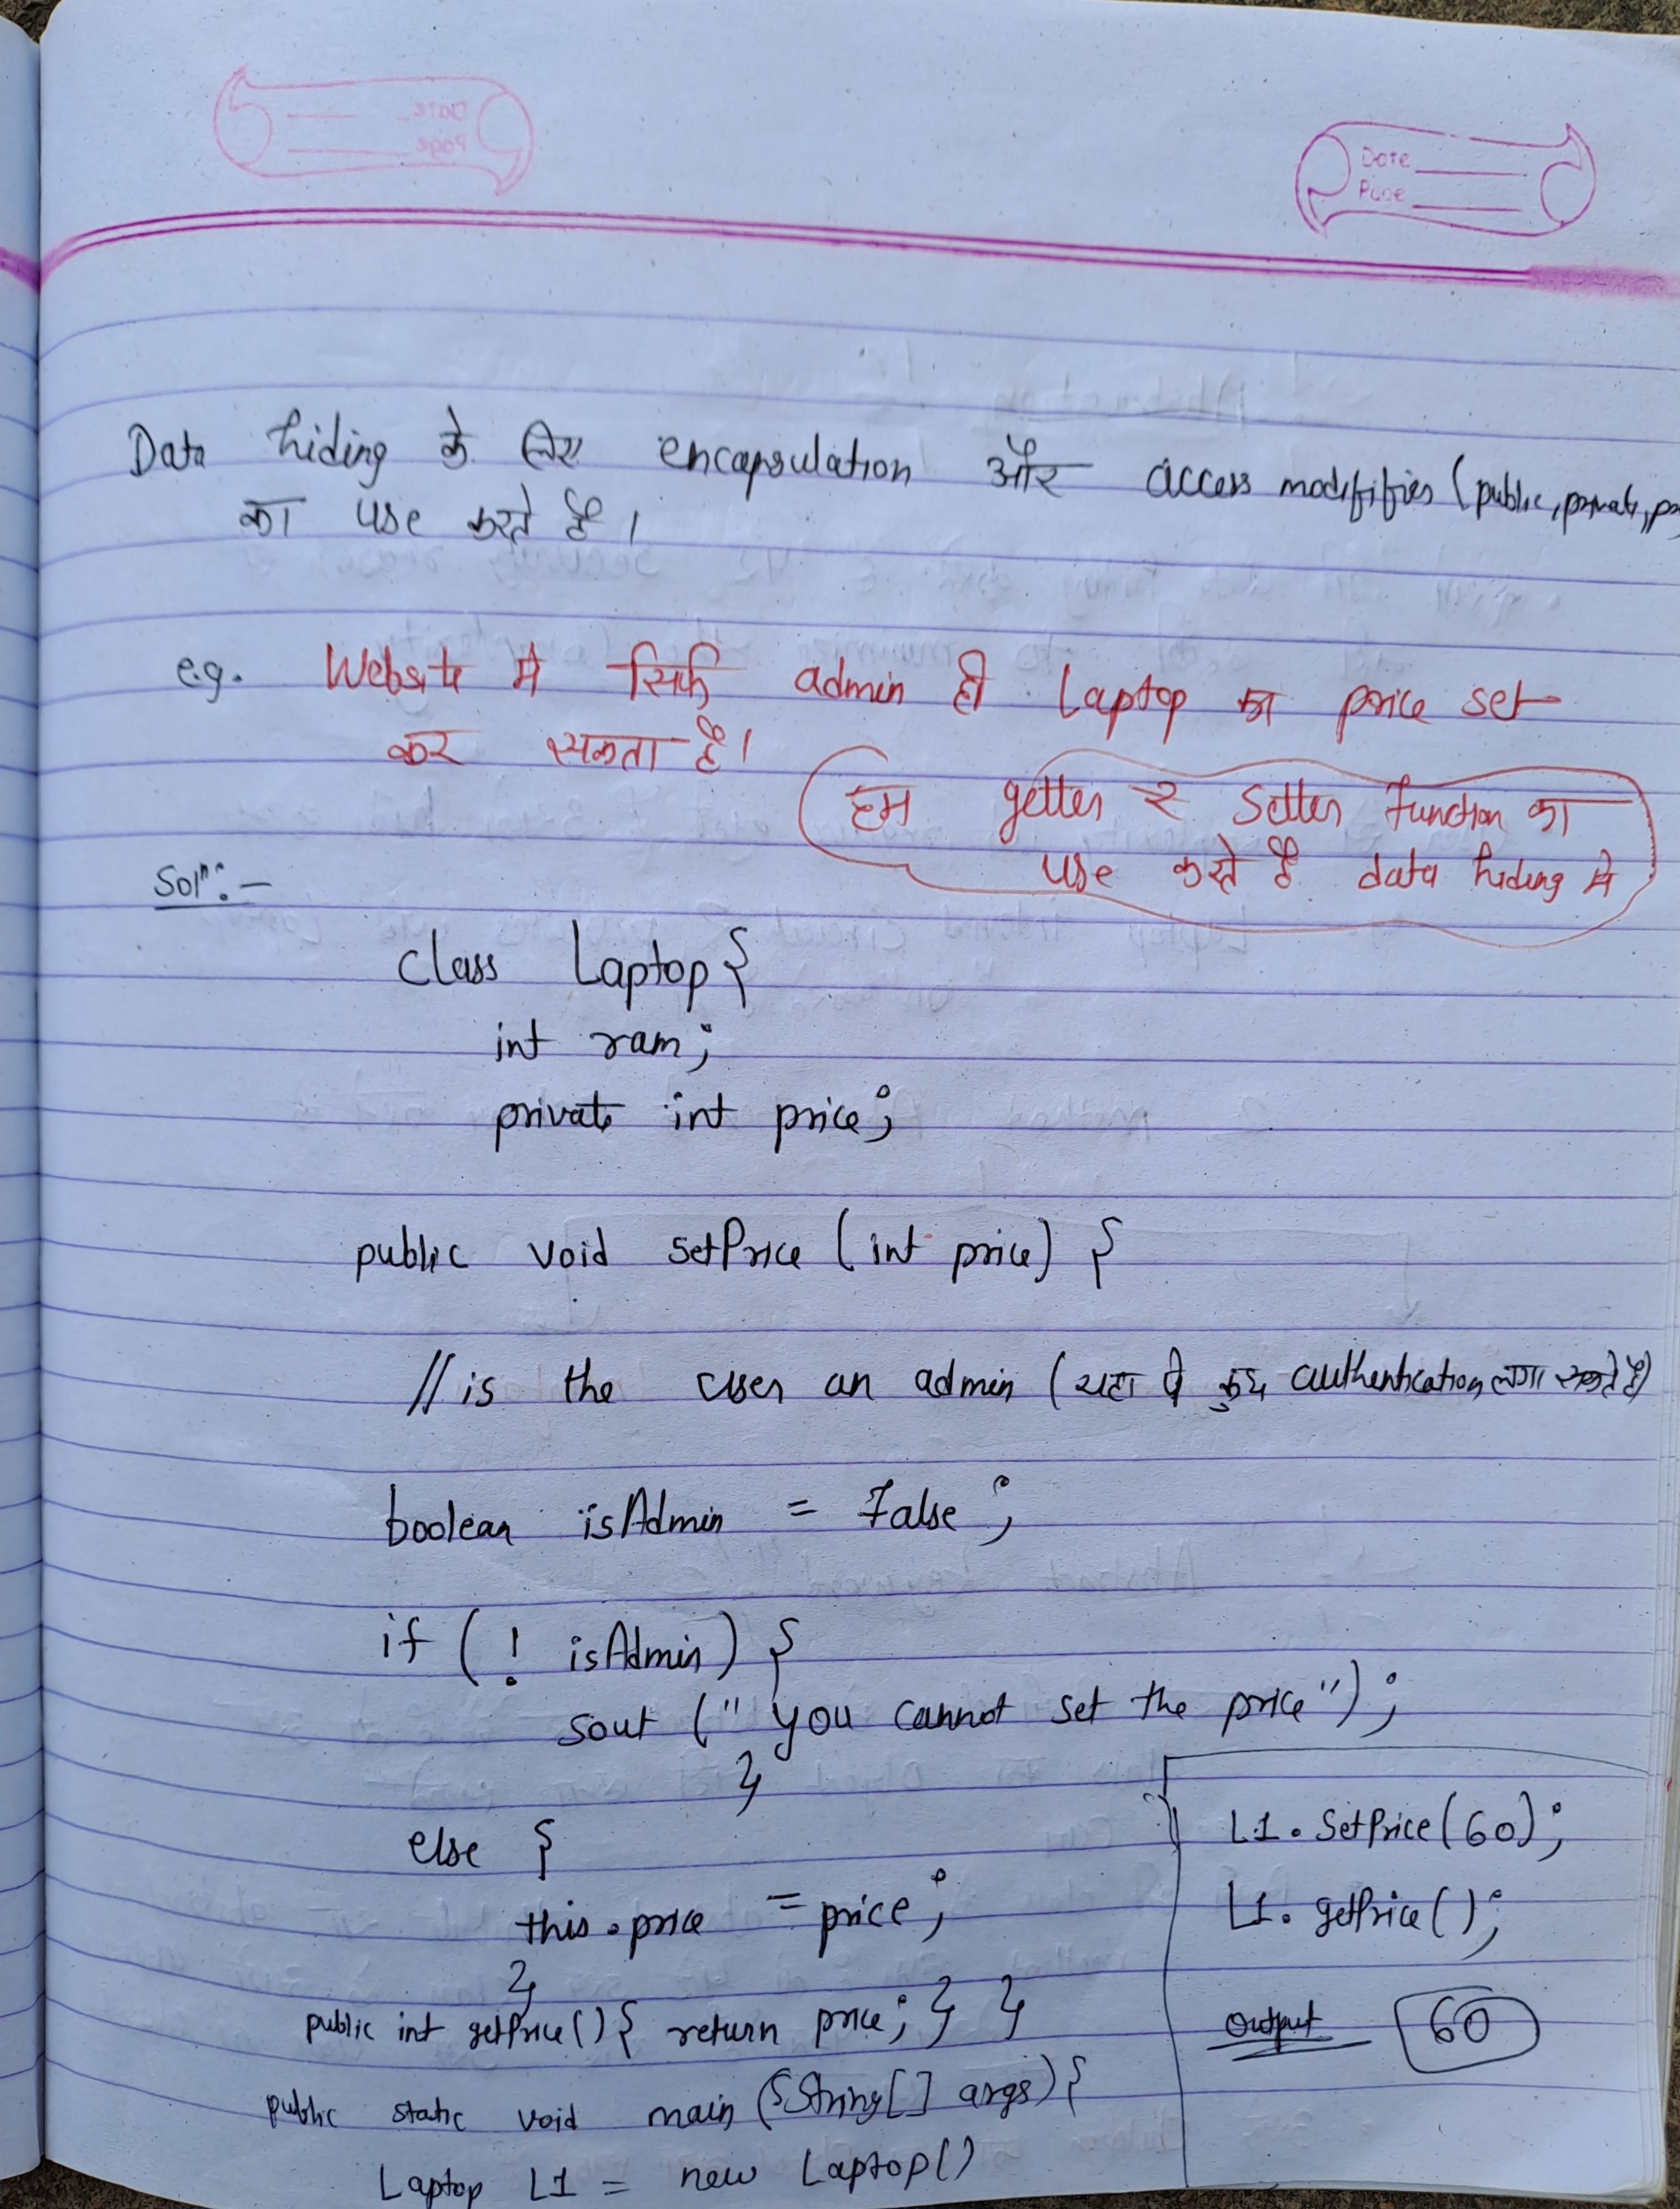 Date
Page
Data hiding के लिए encapsulation और access modififies (public, private, p
का use करते है।
e.g. Website मे सिर्फ admin ही Laptop का price set
कर सकता है।
हम getter र setter function का
use करते है data hiding मे
Solⁿ:-
class Laptop{
int ram;
private int price;
public void setPrice (int price) {
// is the user an admin (यहा पे कुछ authentication लगा सकते है)
boolean isAdmin = False;
if (! isAdmin) {
sout ("you cannot set the price");
}
else {
this.price = price;
}
public int getPrice() { return price; } }
public static void main (String[] args){
Laptop L1 = new Laptop()
L1. SetPrice(60);
L1. getPrice();
Output 60